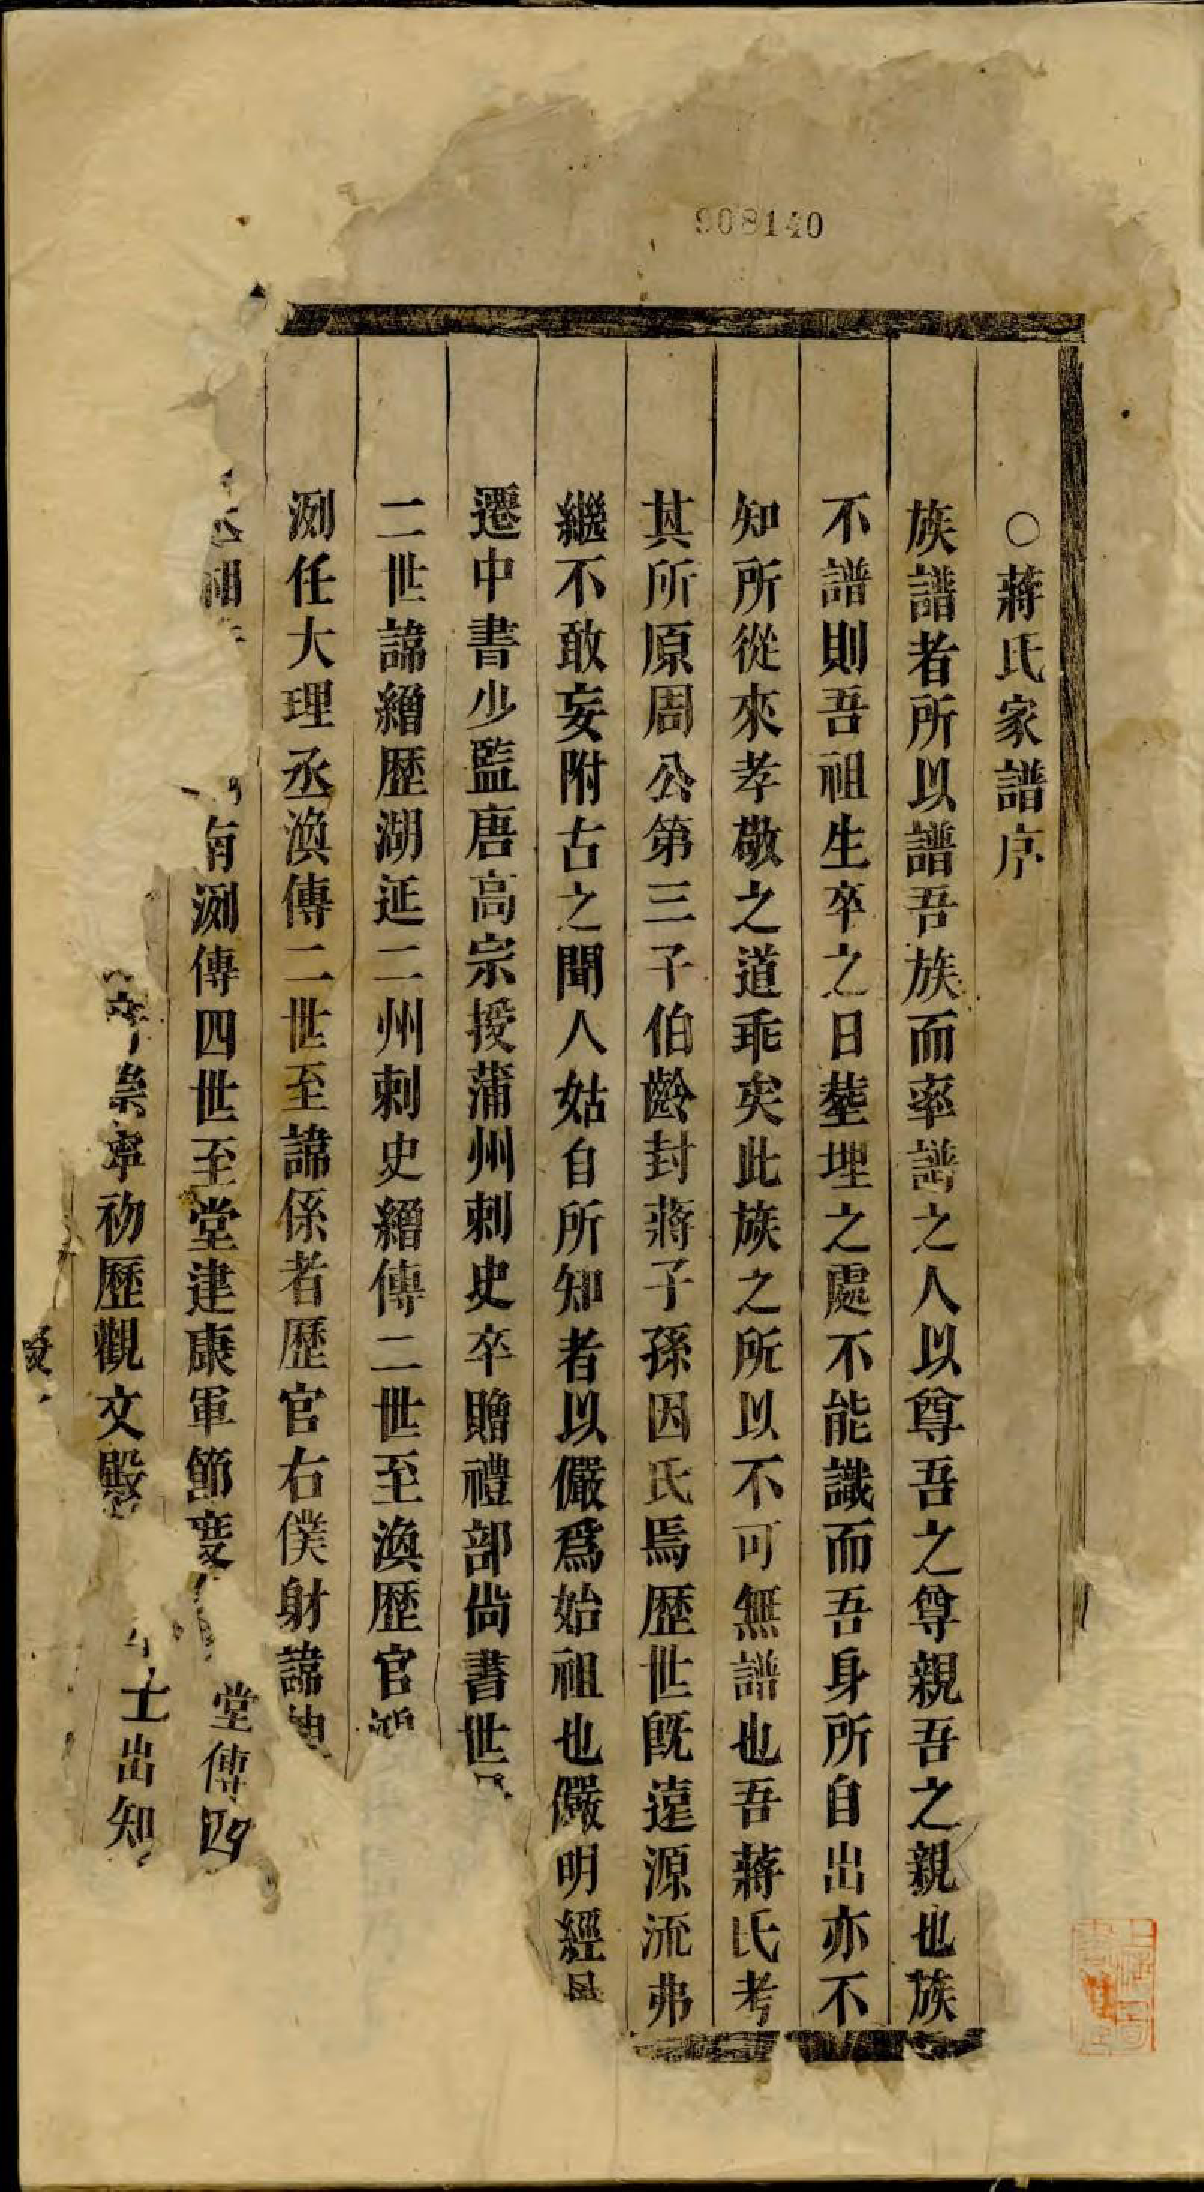 908140
○蔣氏家譜序
族譜者所以譜吾族而率譜之人以尊吾之尊親吾之親也族
不譜則吾祖生卒之日塟埋之處不能識而吾身所自出亦不
知所從來孝敬之道乖矣此族之所以不可無譜也吾蔣氏考
其所原周公第三子伯齡封蔣子孫因氏焉歴世旣遠源流弗
繼不敢妄附古之聞人姑自所知者以儼爲始祖也儼明經
遷中書少監唐高宗授蒲州刺史卒贈禮部尙書世
二世諱繒歴湖延二州刺史繒傳二世至渙歴官
洌任大理丞渙傳二世至諱係者歴官右僕射諱
南洌傳四世至堂建康軍節度 堂傳四
崇寧初歷觀文殿 士出知